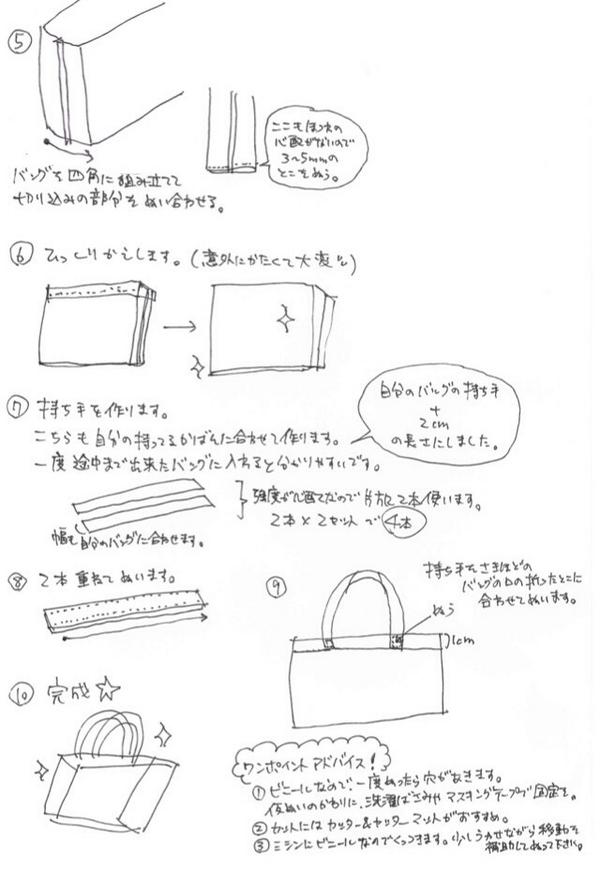 ⑤
ここもほつれの
心配がないので
3〜5mmの
とこをぬう。
バッグを四角に組み立てて
切り込みの部分をぬい合わせる。
⑥ ひっくりかえします。(意外にかたくて大変)
⑦ 持ち手を作ります。
こちらも自分の持ってるかばんに合わせて作ります。
一度途中まで出来たバッグに入れると分かりやすいです。
自分のバッグの持ち手
+
2cm
の長さにしました。
強度が心配なので片方に2本使います。
2本×2セットで4本
幅も自分のバッグに合わせます。
⑧ 2本重ねてぬいます。
⑨
持ち手をさきほどの
バッグの口の折ったとこに
合わせてぬいます。
ぬう
1cm
⑩ 完成☆
ワンポイントアドバイス!
① ビニールなので、一度ぬったら穴があきます。
仮ぬいのかわりに、洗濯ばさみやマスキングテープで固定を。
② カットにはカッター&カッターマットがおすすめ。
③ ミシンにビニールなのでくっつきます。少しうかせながら移動を
補助してぬって下さい。